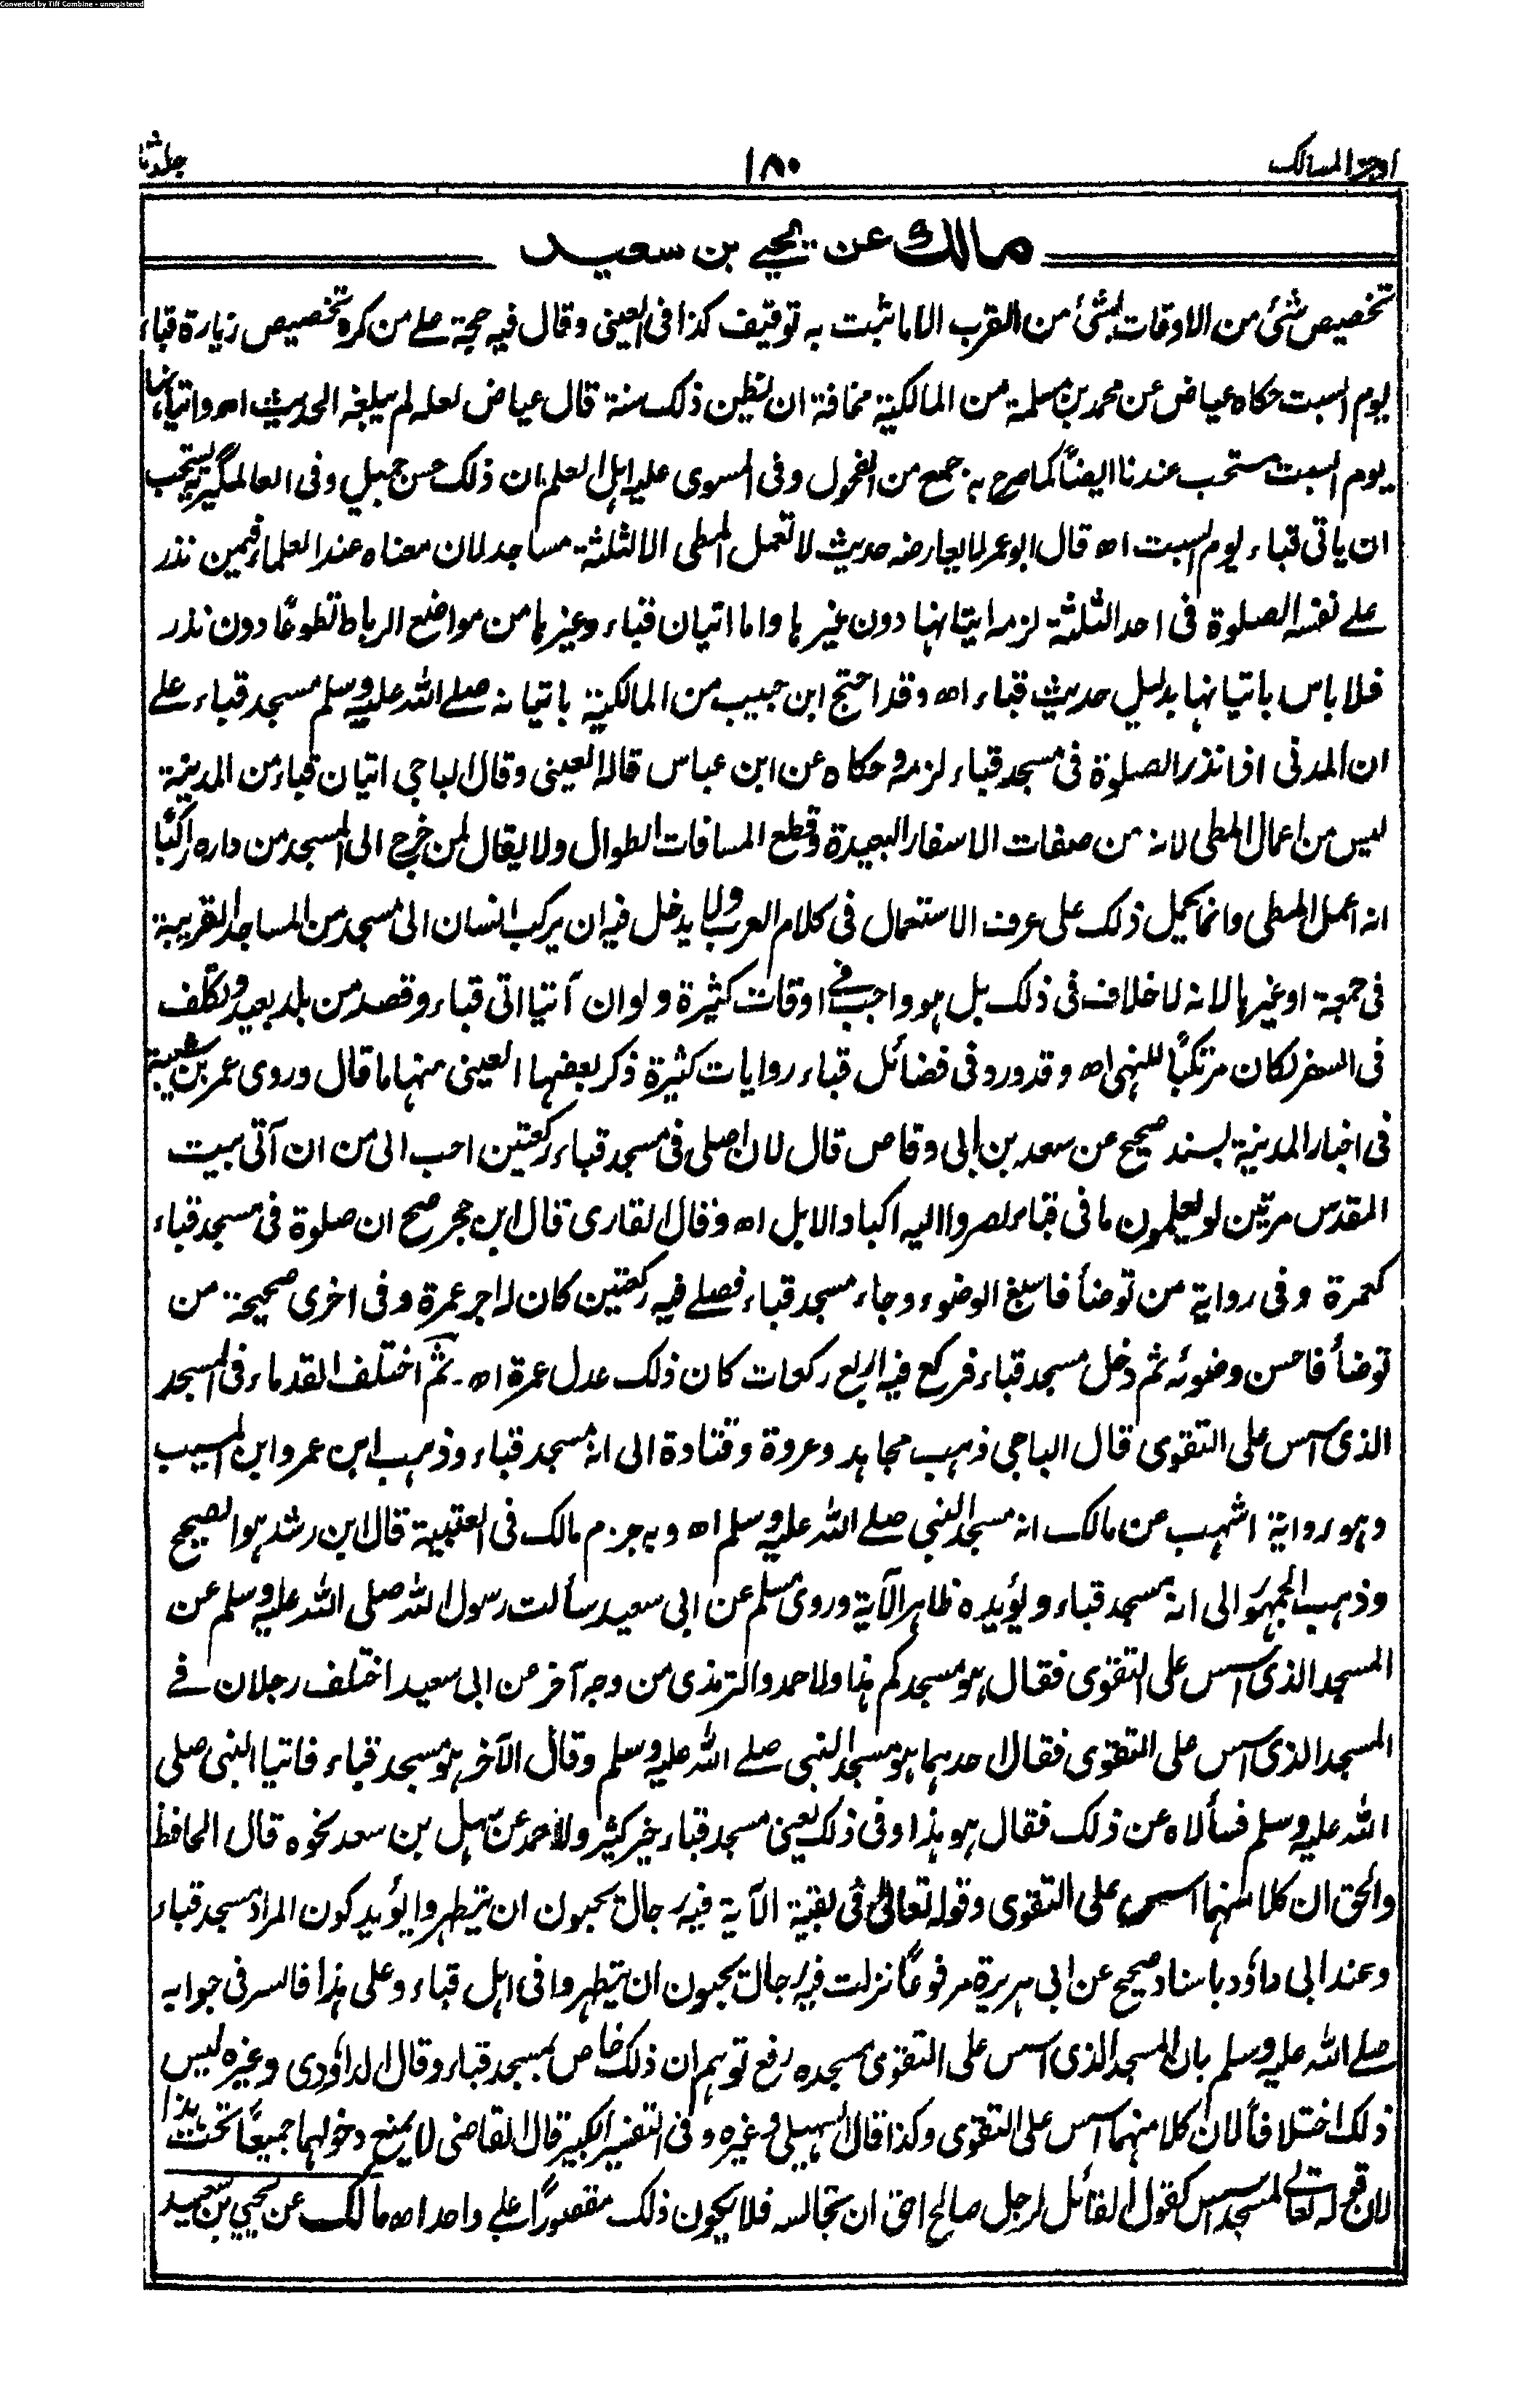 Converted by Tiff Combine - unregistered
اوجز المسالك ١٨٠ جلد ثا
مالك عن يحيى بن سعيد
تخصيص شئ من الاوقات بشئ من القرب الا ما ثبت به توقيف كذا فى العينى وقال فيه حجة على من كره تخصيص زيارة قباء
يوم السبت حكاه عياض عن محمد بن مسلمة من المالكية مخافة ان يظن ذلك سنة قال عياض لعله لم يبلغه الحديث اھ واتيانها
يوم السبت مستحب عندنا ايضاً كما صرح به جمع من الفحول وفى المسوى عليه اهل العلم ان ذلك حسن جميل وفى العالمگيرية يستحب
ان ياتى قباء يوم السبت اھ قال ابو عمر لا يعارضه حديث لا تعمل المطى الا لثلثة مساجد لان معناه عند العلماء فيمن نذر
على نفسه الصلوة فى احد الثلثة لزمه اتيانها دون غيرها واما اتيان قباء وغيرها من مواضع الرباط تطوعًا دون نذر
فلا باس باتيانها بدليل حديث قباء اھ وقد احتج ابن حبيب من المالكية باتيانه صلى الله عليه وسلم مسجد قباء على
ان المدنى اذا نذر الصلوة فى مسجد قباء لزمه وحكاه عن ابن عباس قاله العينى وقال الباجى اتيان قباء من المدينة
ليس من اعمال المطى لانه من صفات الاسفار البعيدة وقطع المسافات الطوال ولا يقال لمن خرج الى المسجد من داره راكبًا
انه اعمل المطى وانما يحمل ذلك على عرف الاستعمال فى كلام العرب ولا يدخل فيه ان يركب انسان الى مسجد من المساجد القريبة
فى جمعة او غيرها لانه لا خلاف فى ذلك بل هو واجب فى اوقات كثيرة ولو ان آتيا اتى قباء وقصد من بلد بعيد وتكلف
فى السفر لكان مرتكبًا للنهى اھ وقد ورد فى فضائل قباء روايات كثيرة ذكر بعضها العينى منها ما قال وروى عمر بن شعبة
فى اخبار المدينة بسند صحيح عن سعد بن ابى وقاص قال لان اصلى فى مسجد قباء ركعتين احب الى من ان آتى بيت
المقدس مرتين لو يعلمون ما فى قباء لضربوا اليه اكباد الابل اھ وقال القارى قال ابن حجر صح ان صلوة فى مسجد قباء
كعمرة وفى رواية من توضأ فاسبغ الوضوء وجاء مسجد قباء فصلى فيه ركعتين كان له اجر عمرة وفى اخرى صحيحة من
توضأ فاحسن وضوئه ثم دخل مسجد قباء فركع فيه اربع ركعات كان ذلك عدل عمرة اھ۔ ثم اختلف القدماء فى المسجد
الذى اسس على التقوى قال الباجى ذهب مجاهد وعروة وقتادة الى انه مسجد قباء وذهب ابن عمر وابن المسيب
وهو رواية اشهب عن مالك انه مسجد النبى صلى الله عليه وسلم اھ وبه جزم مالك فى العتبية قال ابن رشد هو الصحيح
وذهب الجمهور الى انه مسجد قباء ويؤيده ظاهر الآية وروى مسلم عن ابى سعيد سألت رسول الله صلى الله عليه وسلم عن
المسجد الذى اسس على التقوى فقال هو مسجدكم هذا ولاحمد والترمذى من وجه آخر عن ابى سعيد اختلف رجلان فى
المسجد الذى اسس على التقوى فقال احدهما هو مسجد النبى صلى الله عليه وسلم وقال الآخر هو مسجد قباء فاتيا النبى صلى
الله عليه وسلم فسألاه عن ذلك فقال هو هذا وفى ذلك يعنى مسجد قباء خير كثير ولاحمد عن سهل بن سعد نحوه قال الحافظ
والحق ان كلا منهما اسس على التقوى وقوله تعالى فى بقية الآية فيه رجال يحبون ان يتطهروا يؤيد كون المراد مسجد قباء
وعند ابى داؤد باسناد صحيح عن ابى هريرة مرفوعًا نزلت فيه رجال يحبون ان يتطهروا فى اهل قباء وعلى هذا فالسر فى جوابه
صلى الله عليه وسلم بان المسجد الذى اسس على التقوى مسجده رفع توهم ان ذلك خاص بمسجد قباء وقال الداؤدى وغيره ليس
ذلك اختلافاً لان كلا منهما اسس على التقوى وكذا قال السهيلى وغيره وفى التفسير الكبير قال القاضى لا يمنع دخولهما جميعًا تحت هذا
لان قوله تعالى لمسجد اسس كقول القائل لرجل صالح احق ان تجالسه فلا يكون ذلك مقصورًا على واحد اھ مالك عن يحيى بن سعيد